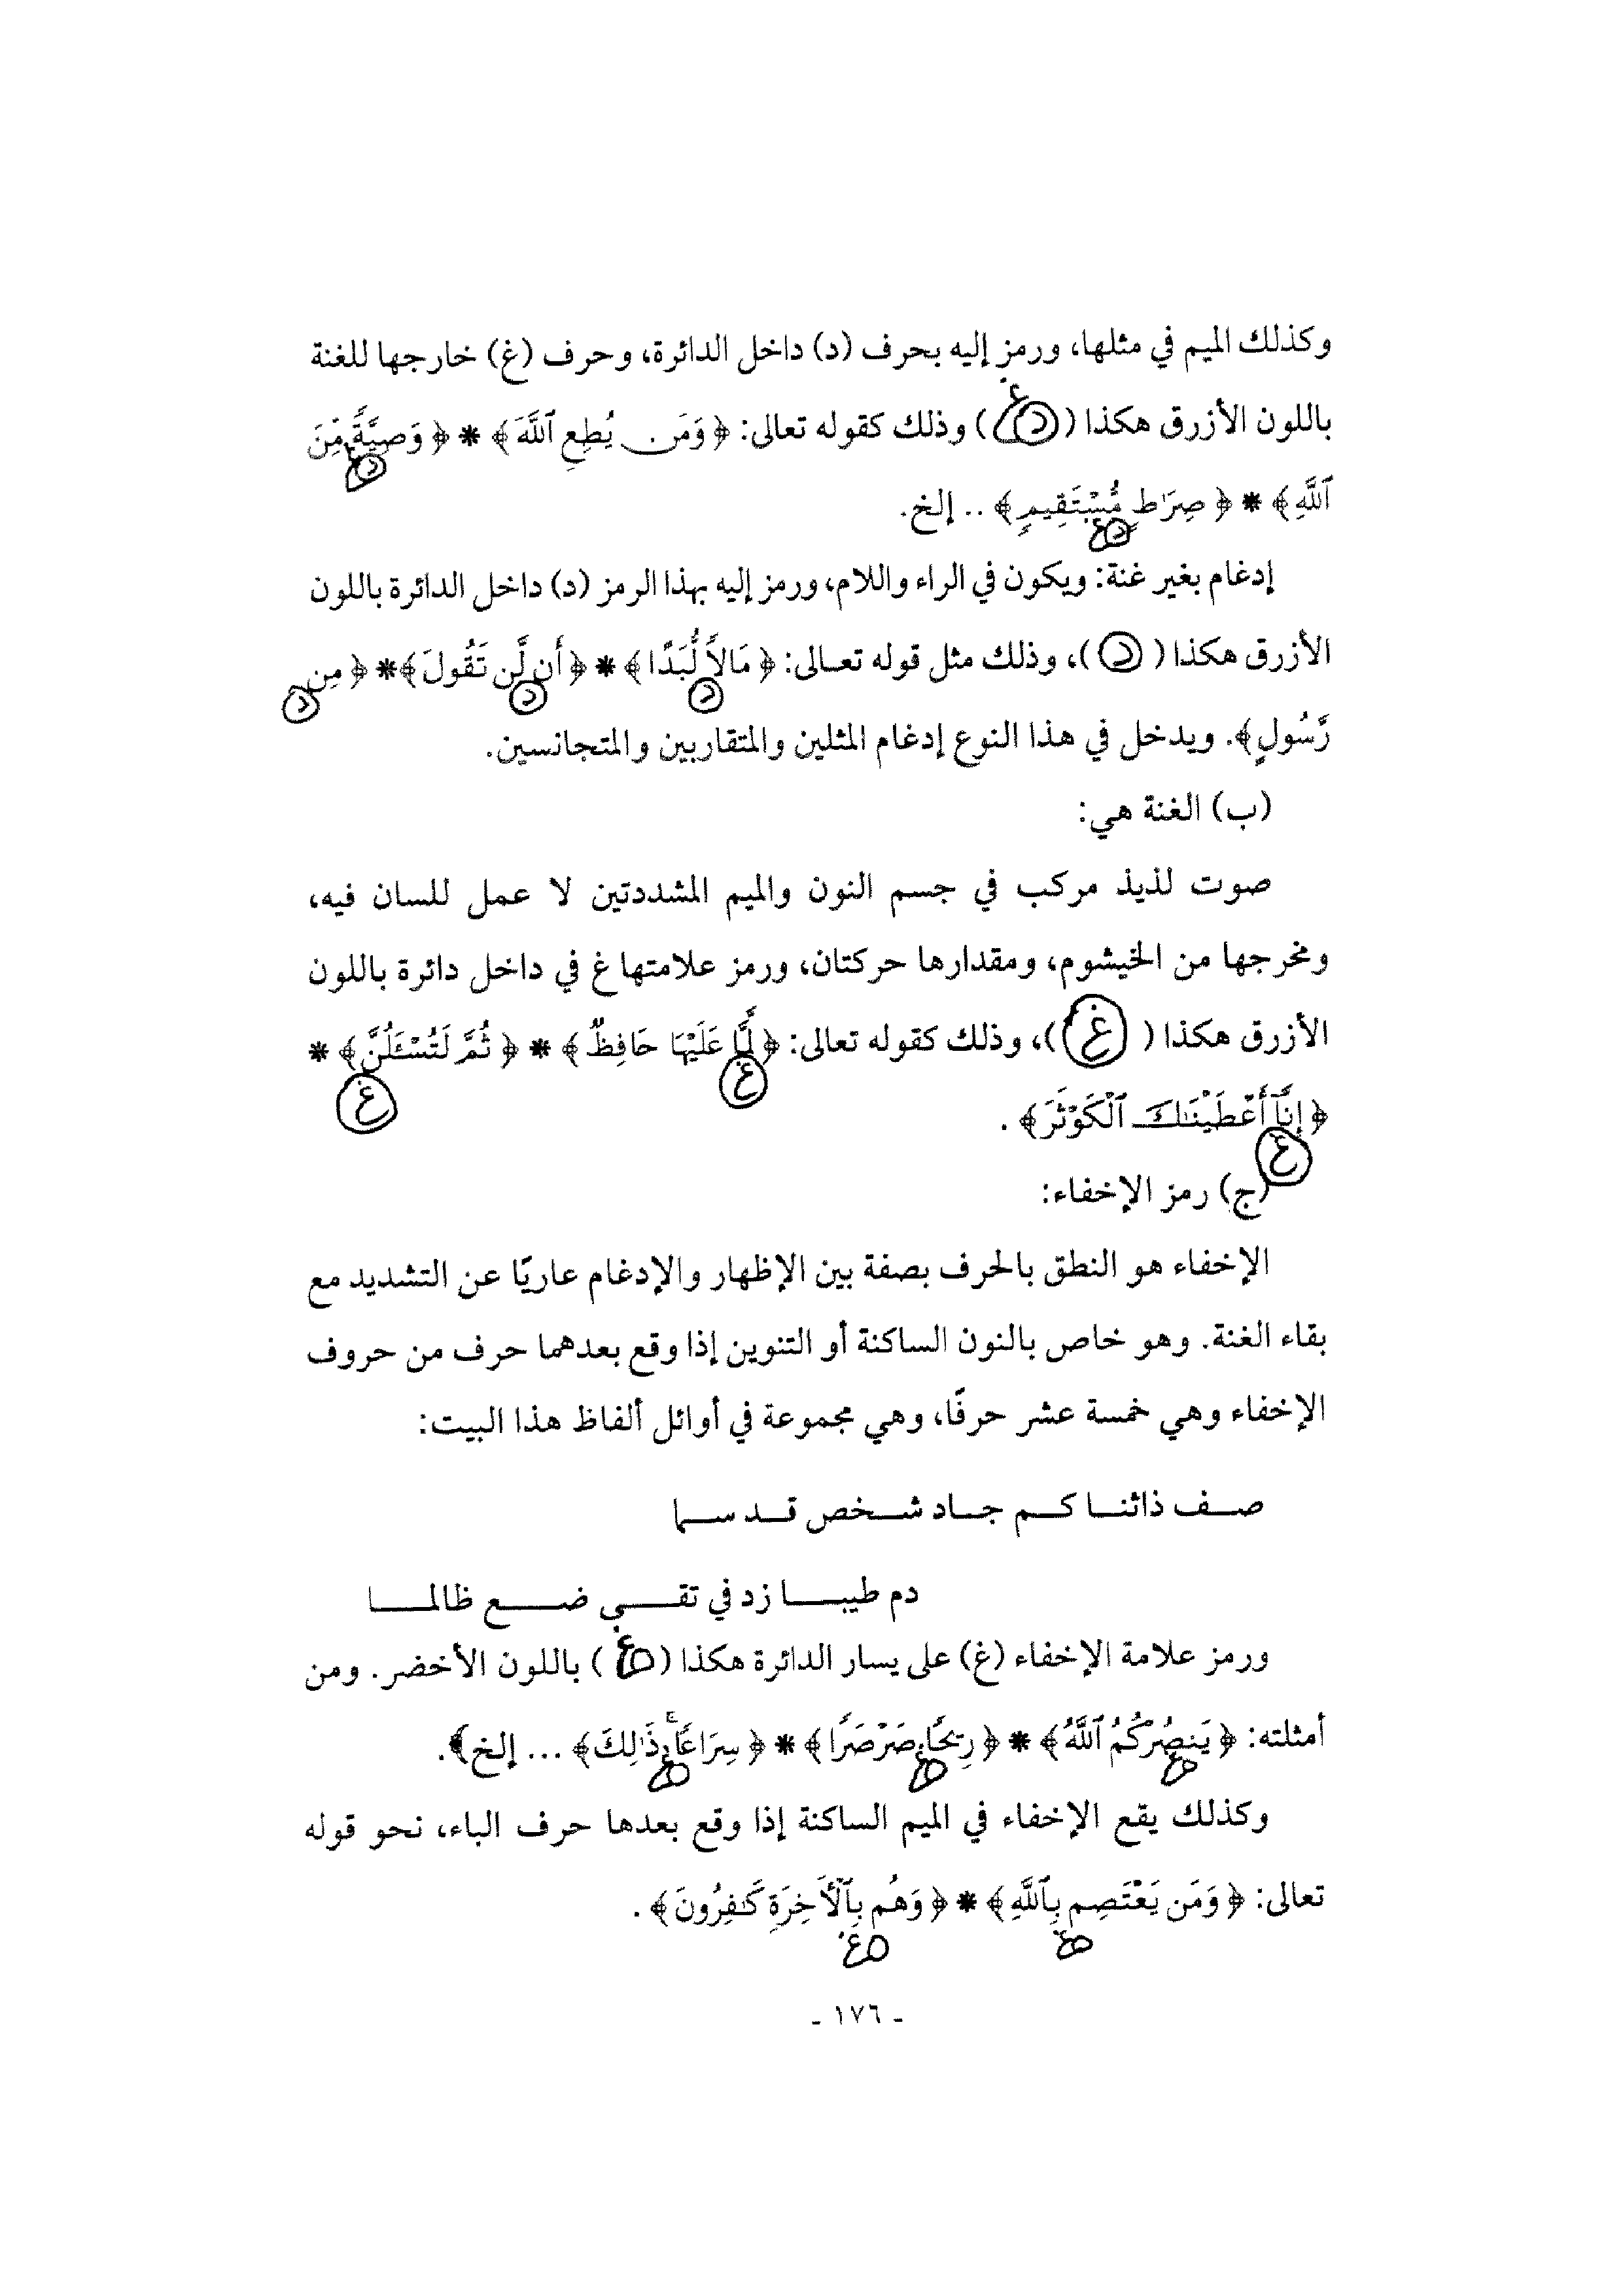 وكذلك الميم في مثلها، ورمز إليه بحرف (د) داخل الدائرة، وحرف (غ) خارجها للغنة
باللون الأزرق هكذا (د غ) وذلك كقوله تعالى: ﴿وَمَن يُطِعِ ٱللَّهَ﴾ * ﴿وَصِيَّةً مِّنَ
د غ
ٱللَّهِ﴾ * ﴿صِرَٰطٍ مُّسْتَقِيمٍ﴾ .. إلخ.
د غ
إدغام بغير غنة: ويكون في الراء واللام، ورمز إليه بهذا الرمز (د) داخل الدائرة باللون
الأزرق هكذا (د)، وذلك مثل قوله تعالى: ﴿مَالاً لُّبَدًا﴾ * ﴿أَن لَّن تَقُولَ﴾ * ﴿مِن
د د د
رَّسُولٍ﴾. ويدخل في هذا النوع إدغام المثلين والمتقاربين والمتجانسين.
(ب) الغنة هي:
صوت لذيذ مركب في جسم النون والميم المشددتين لا عمل للسان فيه،
ومخرجها من الخيشوم، ومقدارها حركتان، ورمز علامتها غ في داخل دائرة باللون
الأزرق هكذا (غ)، وذلك كقوله تعالى: ﴿لَّمَّا عَلَيْهَا حَافِظٌ﴾ * ﴿ثُمَّ لَتُسْـَٔلُنَّ﴾ *
غ غ
﴿إِنَّآ أَعْطَيْنَـٰكَ ٱلْكَوْثَرَ﴾ .
غ
(ج) رمز الإخفاء:
الإخفاء هو النطق بالحرف بصفة بين الإظهار والإدغام عاريًا عن التشديد مع
بقاء الغنة. وهو خاص بالنون الساكنة أو التنوين إذا وقع بعدهما حرف من حروف
الإخفاء وهي خمسة عشر حرفًا، وهي مجموعة في أوائل ألفاظ هذا البيت:
صف ذاثنا كم جاد شخص قد سما
دم طيبا زد في تقى ضع ظالما
ورمز علامة الإخفاء (غ) على يسار الدائرة هكذا (غ) باللون الأخضر. ومن
أمثلته: ﴿يَنصُرْكُمُ ٱللَّهُ﴾ * ﴿رِيحًا صَرْصَرًا﴾ * ﴿سِرَاعًا ۚ ذَٰلِكَ﴾ ... إلخ﴾.
غ غ غ
وكذلك يقع الإخفاء في الميم الساكنة إذا وقع بعدها حرف الباء، نحو قوله
تعالى: ﴿وَمَن يَعْتَصِم بِٱللَّهِ﴾ * ﴿وَهُم بِٱلْأَخِرَةِ كَـٰفِرُونَ﴾ .
غ غ
- ١٧٦ -